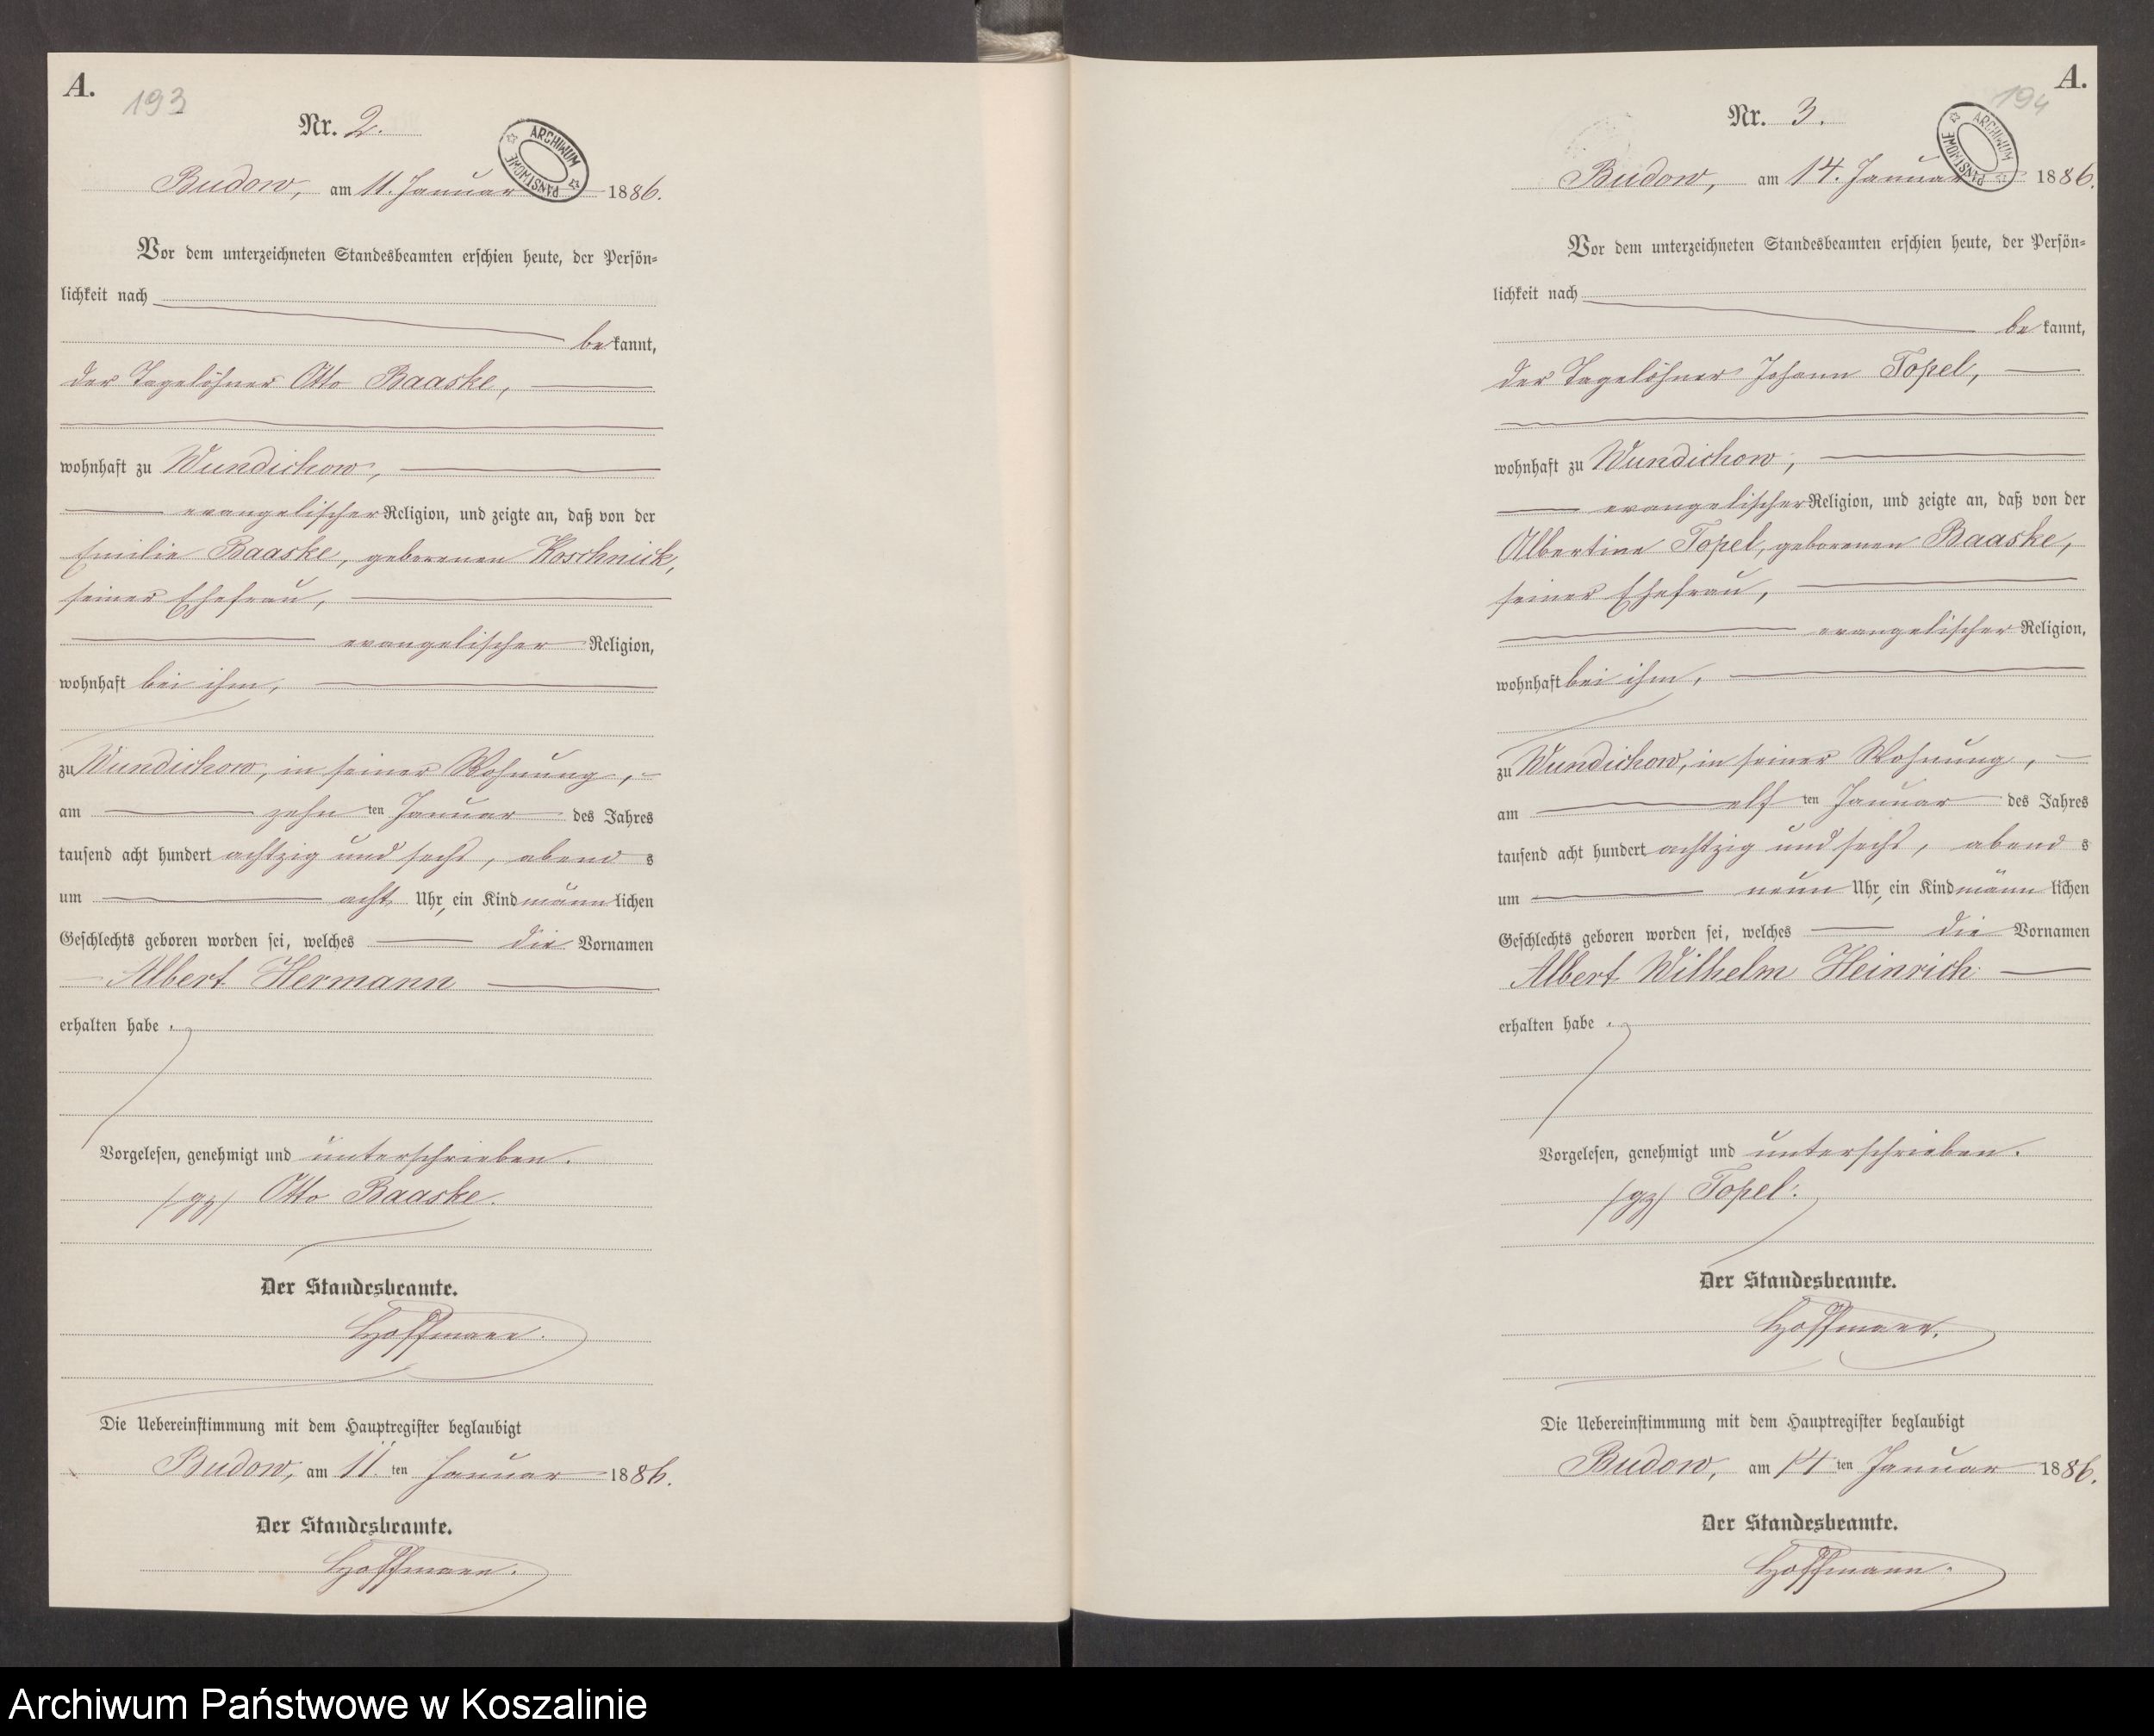 A.
193
Nr. 2.
ARCHIWUM PAŃSTWOWE
Budow, am 11. Januar 1886.
Vor dem unterzeichneten Standesbeamten erschien heute, der Persön=
lichkeit nach
be kannt,
der Tagelöhner Otto Baaske,
wohnhaft zu Wundichow,
evangelischer Religion, und zeigte an, daß von der
Emilie Baaske, geborenen Koschnick,
seiner Ehefrau,
evangelischer Religion,
wohnhaft bei ihm,
zu Wundichow, in seiner Wohnung,
am zehn ten Januar des Jahres
tausend acht hundert achtzig und sechs, abend s
um acht Uhr, ein Kind männ lichen
Geschlechts geboren worden sei, welches die Vornamen
Albert Hermann
erhalten habe.
Vorgelesen, genehmigt und unterschrieben.
(gz) Otto Baaske.
Der Standesbeamte.
Hoffmann.
Die Uebereinstimmung mit dem Hauptregister beglaubigt
Budow, am 11. ten Januar 1886.
Der Standesbeamte.
Hoffmann.
A.
194
Nr. 3.
ARCHIWUM PAŃSTWOWE
Budow, am 14. Januar 1886.
Vor dem unterzeichneten Standesbeamten erschien heute, der Persön=
lichkeit nach
be kannt,
der Tagelöhner Johann Topel,
wohnhaft zu Wundichow,
evangelischer Religion, und zeigte an, daß von der
Albertine Topel, geborenen Baaske,
seiner Ehefrau,
evangelischer Religion,
wohnhaft bei ihm,
zu Wundichow, in seiner Wohnung,
am elf ten Januar des Jahres
tausend acht hundert achtzig und sechs, abend s
um neun Uhr, ein Kind männ lichen
Geschlechts geboren worden sei, welches die Vornamen
Albert Wilhelm Heinrich
erhalten habe.
Vorgelesen, genehmigt und unterschrieben.
(gz) Topel.
Der Standesbeamte.
Hoffmann.
Die Uebereinstimmung mit dem Hauptregister beglaubigt
Budow, am 14 ten Januar 1886.
Der Standesbeamte.
Hoffmann.
Archiwum Państwowe w Koszalinie